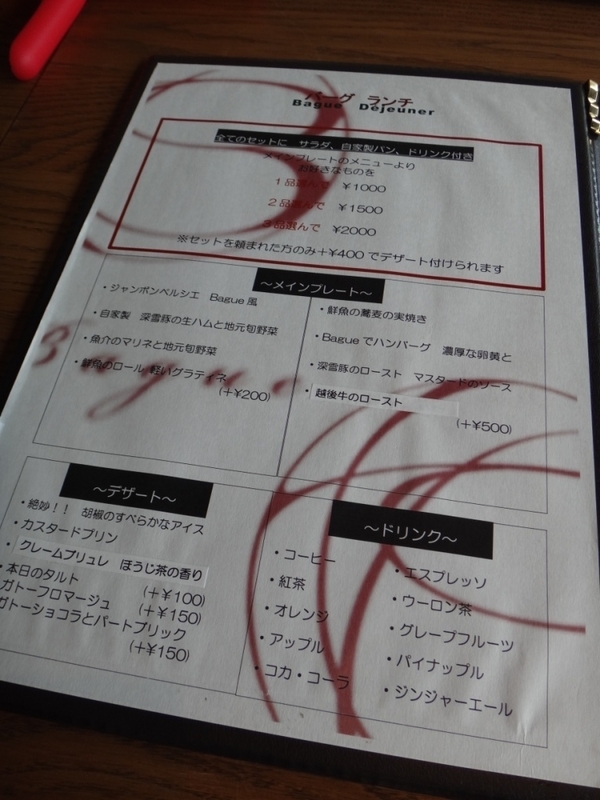 バーグ ランチ
Bague Déjeuner
全てのセットに サラダ、自家製パン、ドリンク付き
メインプレートのメニューより
お好きなものを
1品選んで ¥1000
2品選んで ¥1500
3品選んで ¥2000
※セットを頼まれた方のみ+¥400でデザート付けられます
～メインプレート～
・ジャンボンペルシエ Bague風
・自家製 深雪豚の生ハムと地元旬野菜
・魚介のマリネと地元旬野菜
・鮮魚のロール 軽いグラティネ
(+¥200)
・鮮魚の蕎麦の実焼き
・Bagueでハンバーグ 濃厚な卵黄と
・深雪豚のロースト マスタードのソース
・越後牛のロースト
(+¥500)
Bague
～デザート～
・絶妙!! 胡椒のすべらかなアイス
・カスタードプリン
・クレームブリュレ ほうじ茶の香り
・本日のタルト (+¥100)
ガトーフロマージュ (+¥150)
ガトーショコラとパートブリック
(+¥150)
～ドリンク～
・コーヒー
・紅茶
・オレンジ
・アップル
・コカ・コーラ
・エスプレッソ
・ウーロン茶
・グレープフルーツ
・パイナップル
・ジンジャーエール